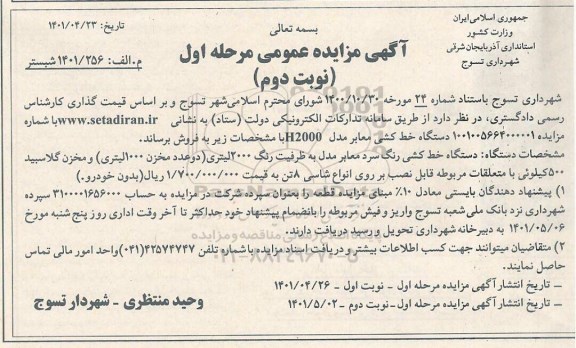 بسمه تعالی
جمهوری اسلامی ایران
وزارت کشور
استانداری آذربایجان شرقی
شهرداری تسوج
تاریخ: ۱۴۰۱/۰۴/۲۳
آگهی مزایده عمومی مرحله اول
(نوبت دوم)
م.الف: ۱۴۰۱/۲۵۶ شبستر
شهرداری تسوج باستناد شماره ۲۴ مورخه ۱۴۰۰/۱۰/۳۰ شورای محترم اسلامی شهر تسوج و بر اساس قیمت گذاری کارشناس
رسمی دادگستری، در نظر دارد از طریق سامانه تدارکات الکترونیکی دولت (ستاد) به نشانی www.setadiran.ir با شماره
مزایده ۱۰۰۱۰۵۶۶۴۰۰۰۰۰۱ دستگاه خط کشی معابر مدل H2000 با مشخصات زیر به فروش برساند.
مشخصات دستگاه: دستگاه خط کشی رنگ سرد معابر مدل به ظرفیت رنگ ۲۰۰۰لیتری(دوعدد مخزن ۱۰۰۰لیتری) و مخزن گلاسبید
۵۰۰کیلوئی با متعلقات مربوطه قابل نصب بر روی انواع شاسی ۸تن به قیمت ۱/۷۰۰/۰۰۰/۰۰۰ ریال(بدون خودرو.)
۱) پیشنهاد دهندگان بایستی معادل ۱۰٪ مبنای مزایده قطعه را بعنوان سپرده شرکت در مزایده به حساب ۳۱۰۰۰۰۱۶۵۶۰۰۰ سپرده
شهرداری نزد بانک ملی شعبه تسوج واریز و فیش مربوطه را بانضمام پیشنهاد خود حداکثر تا آخر وقت اداری روز پنج شنبه مورخ
۱۴۰۱/۰۵/۰۶ به دبیرخانه شهرداری تحویل و رسید دریافت دارند.
۲) متقاضیان میتوانند جهت کسب اطلاعات بیشتر و دریافت اسناد مزایده با شماره تلفن ۴۲۵۷۴۷۴۷(۰۴۱) واحد امور مالی تماس
حاصل نمایند.
– تاریخ انتشار آگهی مزایده مرحله اول - نوبت اول - ۱۴۰۱/۰۴/۲۶
– تاریخ انتشار آگهی مزایده مرحله اول-نوبت دوم -۱۴۰۱/۵/۰۲
وحید منتظری - شهردار تسوج